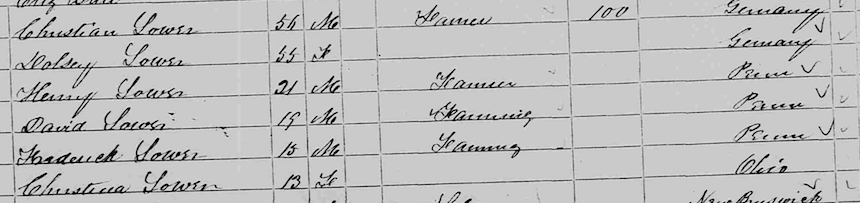 Christian Lower 56 M Farmer 100 Germany
Dolsey Lower 55 F Germany
Henry Lower 21 M Farmer Penn
David Lower 19 M Farming Penn
Frederick Lower 15 M Farming Penn
Christina Lower 13 F Ohio
New Brunswick